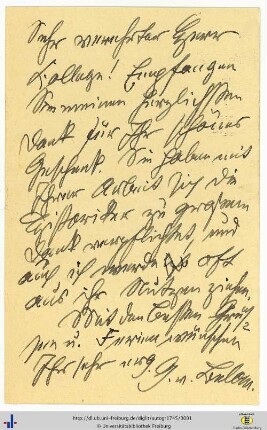 Sehr verehrter Herr
Kollege! Empfangen
Sie meinen herzlichsten
Dank für Ihr schönes
Geschenk. Sie haben mit
Ihrer Arbeit sich die
Historiker zu grossem
Dank verpflichtet, und
auch ich werde oft
aus ihr Nutzen ziehen.
Mit den besten Grüs-
sen u. Ferienwünschen
Ihr sehr erg.
G. v. Below.
http://dl.ub.uni-freiburg.de/diglit/autogr1745/0001
© Universitätsbibliothek Freiburg